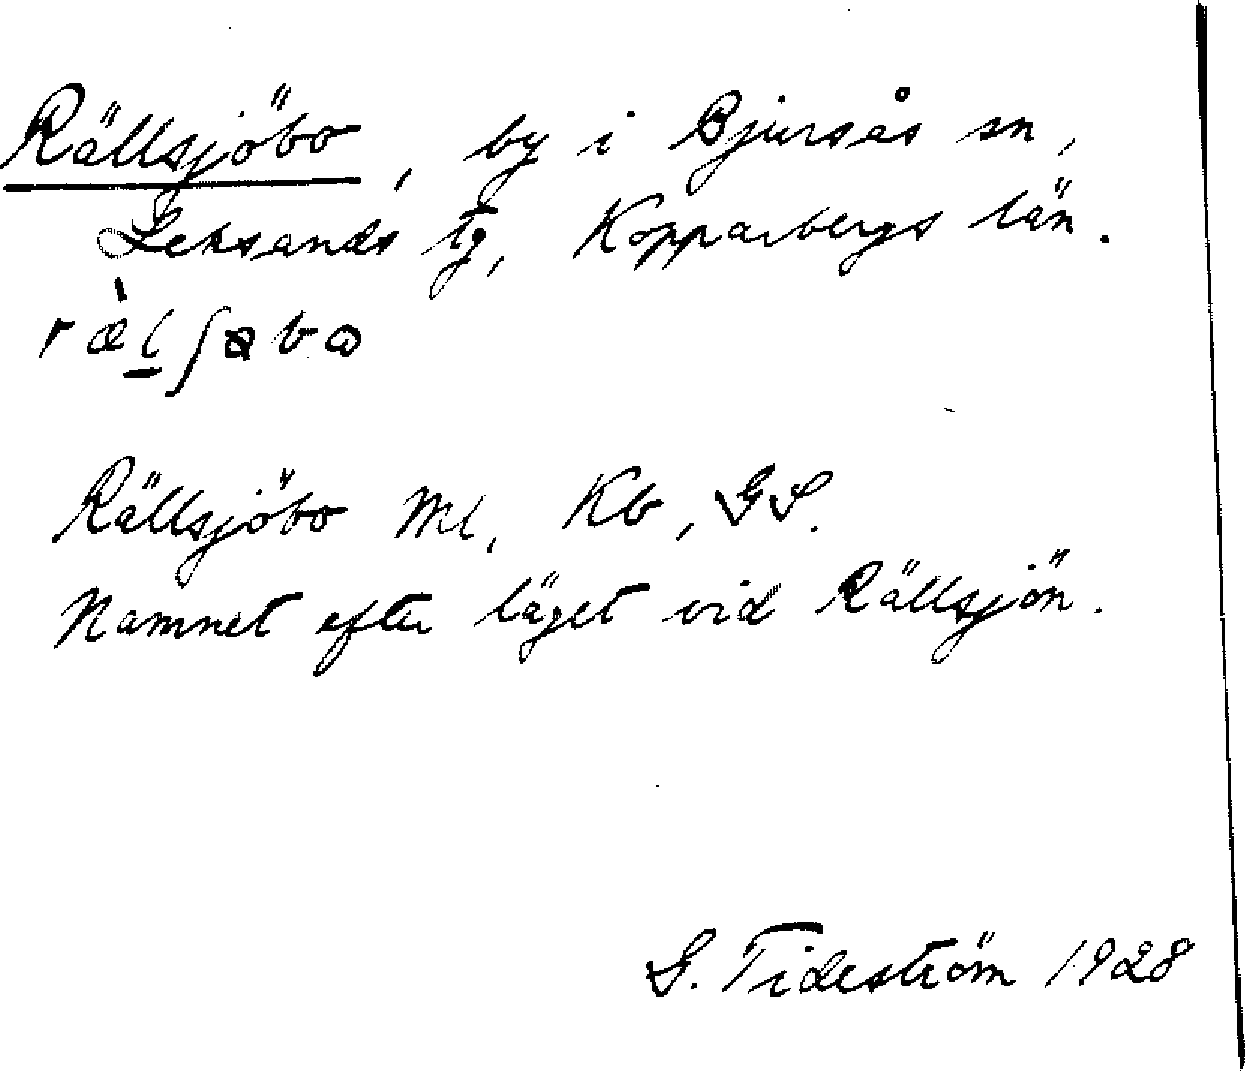 Rällsjöbo, by i Bjursås sn,
Leksands tg, Kopparbergs län.
Rällsjöbo Ml, Kb, GS.
Namnet efter läget vid Rällsjön.
G. Tideström 1928